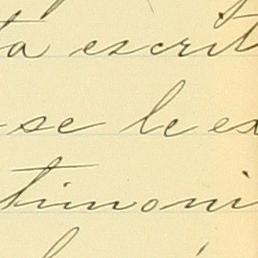 ta escrit
-se le ex
timoni